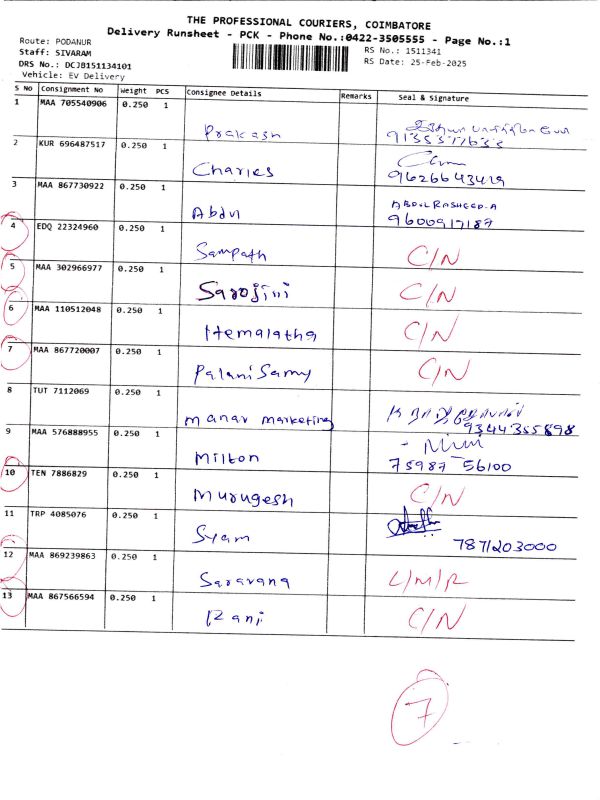 THE PROFESSIONAL COURIERS, COIMBATORE
Delivery Runsheet - PCK - Phone No.:0422-3505555 - Page No.:1
Route: PODANUR
Staff: SIVARAM
DRS No.: DCJB151134101
Vehicle: EV Delivery
RS No.: 1511341
RS Date: 25-Feb-2025
S NO Consignment No Weight PCS Consignee Details Remarks Seal & Signature
1 MAA 705540906 0.250 1 Prakash
2 KUR 696487517 0.250 1 Charles 9626643429
3 MAA 867730922 0.250 1 Abdul ABDUL RASHEED.A
9600917187
4 EDQ 22324960 0.250 1 Sampath C/N
5 MAA 302966977 0.250 1 Sarojini C/N
6 MAA 110512048 0.250 1 Hemalatha C/N
7 MAA 867720007 0.250 1 PalaniSamy C/N
8 TUT 7112069 0.250 1 Manav Marketing
9344355898
9 MAA 576888955 0.250 1 Milton
75987 56100
10 TEN 7886829 0.250 1 Murugesh C/N
11 TRP 4085076 0.250 1 Syam
7871203000
12 MAA 869239863 0.250 1 Saravana L/M/R
13 MAA 867566594 0.250 1 Rani C/N
7